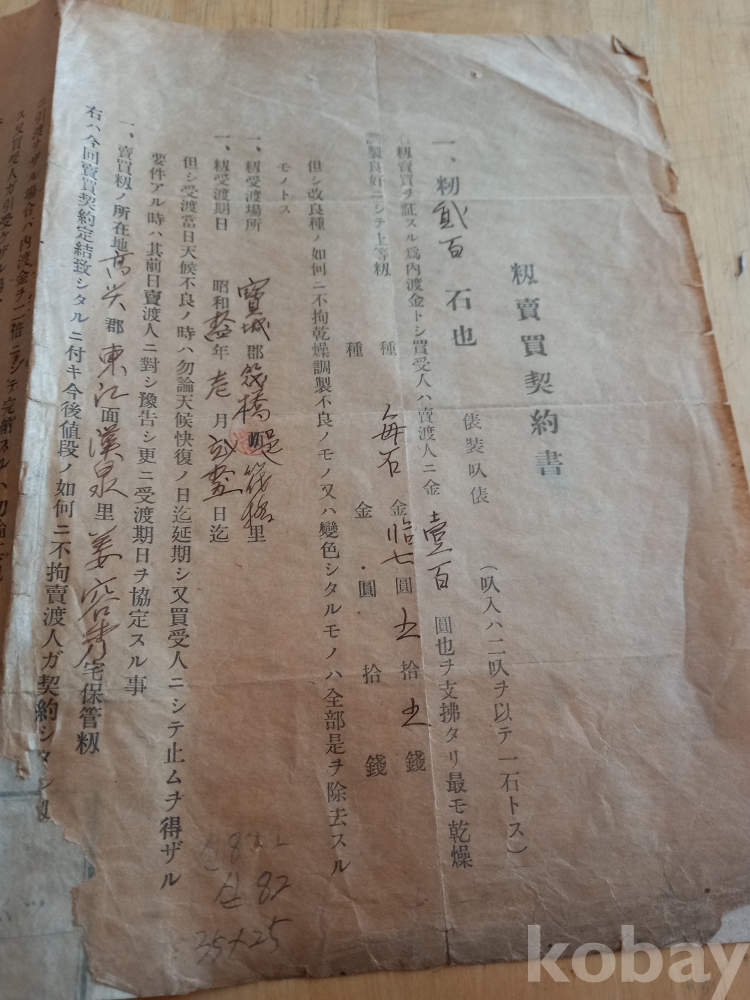 籾賣買契約書
一、籾貳百石也 俵装叺俵 (叺入ハ二叺ヲ以テ一石トス)
右籾賣買ヲ証スル爲內渡金トシ買受人ハ賣渡人ニ金壹百圓也ヲ支拂タリ最モ乾燥
調製良好ニシテ上等籾
種 每石金拾七圓五拾五錢
種 金 圓 拾 錢
但シ改良種ノ如何ニ不拘乾燥調製不良ノモノ又ハ變色シタルモノハ全部是ヲ除去スル
モノトス
一、籾受渡場所 寶城郡筏橋 筏橋里
一、籾受渡期日 昭和 年 月 日迄
但シ受渡當日天候不良ノ時ハ勿論天候快復ノ日迄延期シ又買受人ニシテ止ムヲ得ザル
要件アル時ハ其前日賣渡人ニ對シ豫告シ更ニ受渡期日ヲ協定スル事
一、賣買籾ノ所在地高興郡東江面漢泉里姜容秀宅保管籾
右ハ今回賣買契約定結致シタルニ付キ今後値段ノ如何ニ不拘賣渡人ガ契約シタル籾
ニ引渡サザル場合ハ內渡金ヲ二倍ニシテ完納スルハ勿論
ス又買受人ガ引受ケザル場
82
25+25
kobay